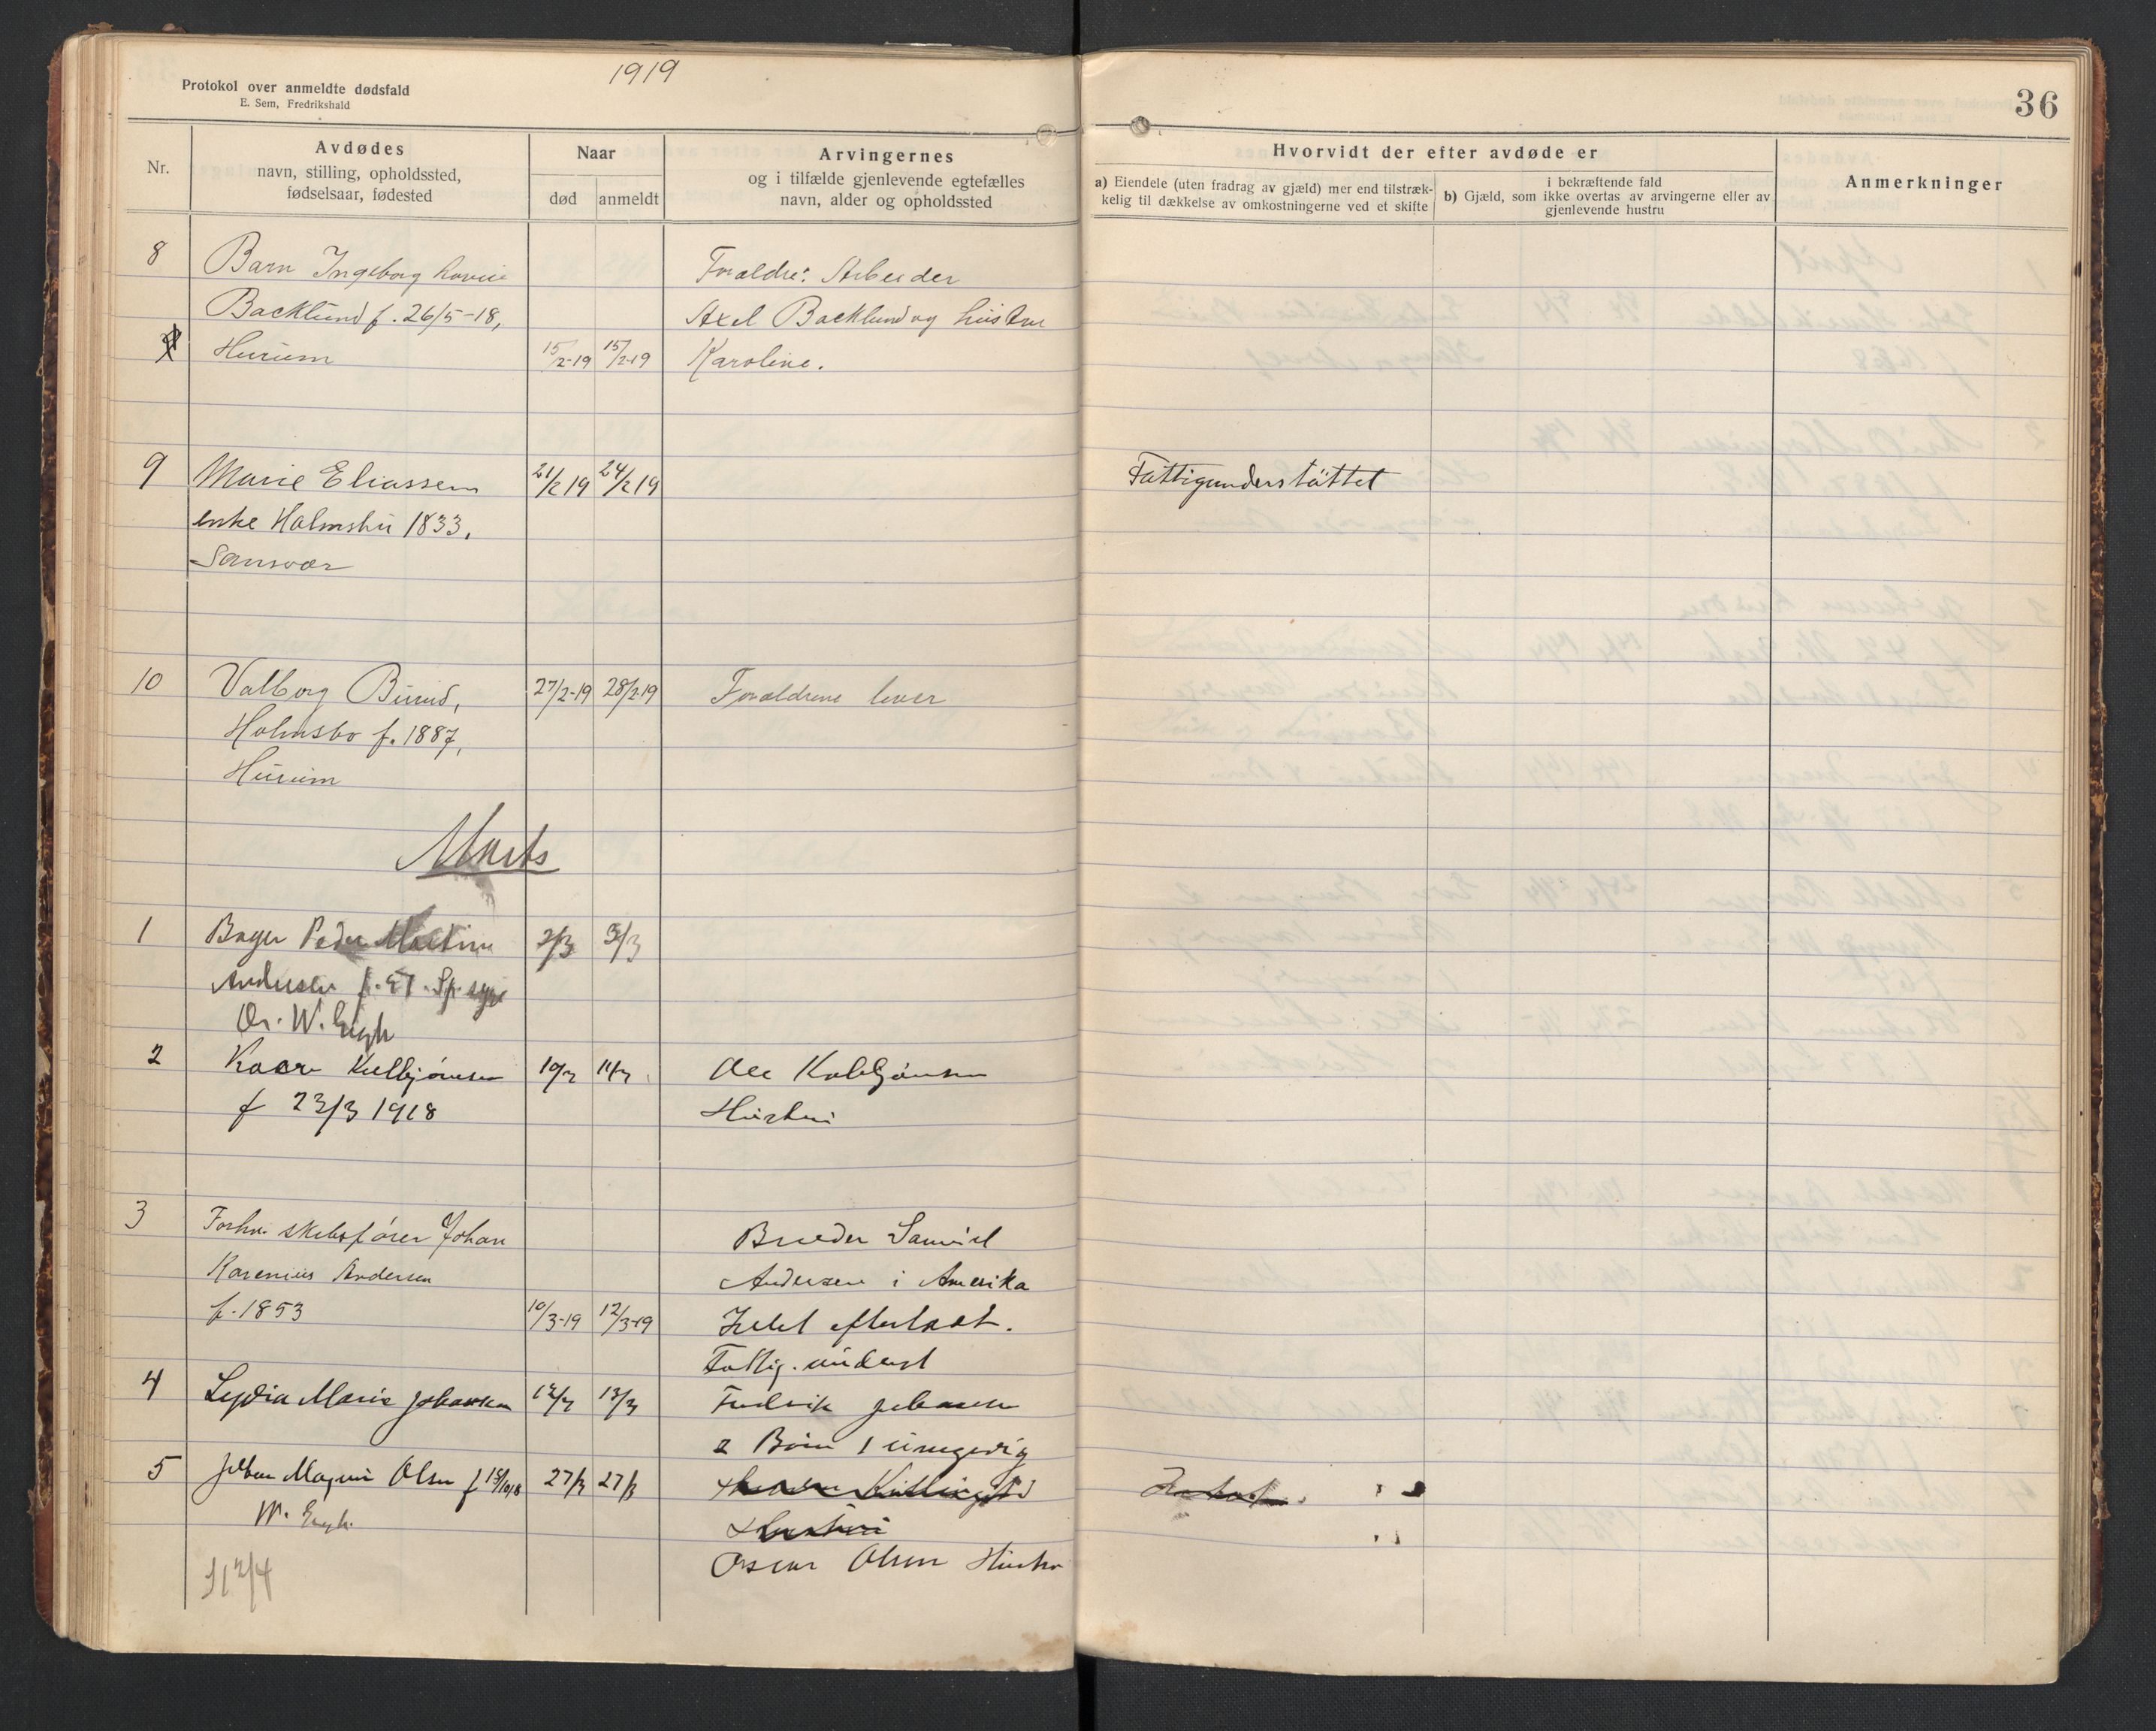 1919
Protokol over anmeldte dødsfald
E. Sem, Fredrikshald
36
Nr.
Avdødes
navn, stilling, opholdssted,
fødselsaar, fødested
Naar
død
anmeldt
Arvingernes
og i tilfælde gjenlevende egtefælles
navn, alder og opholdssted
Hvorvidt der efter avdøde er
a) Eiendele (uten fradrag av gjæld) mer end tilstræk-
kelig til dækkelse av omkostningerne ved et skifte
i bekræftende fald
b) Gjæld, som ikke overtas av arvingerne eller av
gjenlevende hustru
Anmerkninger
8
Barn Ingeborg
Backlund f. 26/5-18,
Hurum
15/2-19
15/2-19
Foraldre: Arbeider
Axel Backlund og hustru
Karoline.
9
Marie Eliassen
enke Holmsbu 1833.
Sansvær
21/2 19
24/2 19
Fattigunderstøttet
10
Valborg Buud,
Holmsbo f. 1887,
Hurum
27/2-19
28/2-19
Forældrene lever
Marts
1
Bager Peder Martin
Andersen f.
W. Engh
2/3
3/3
2
Kaare Kolbjørnsen
f 23/3 1918
10/3
11/3
Ole Kolbjørnsen
Hustru
3
Forhv. skibsfører Johan
Karenius Andersen
f. 1853
10/3-19
12/3-19
Broder Samuel
Andersen i Amerika
Intet efterladt.
Fattig. underst
4
Lydia Marie Johansen
12/3
13/3
Fredrik Johansen
2 Børn 1 umyndig
5
Johan Magnus Olsen f 15/10 18
W. Engh.
27/3
27/3
Hustru
Oscar Olsen Hustru